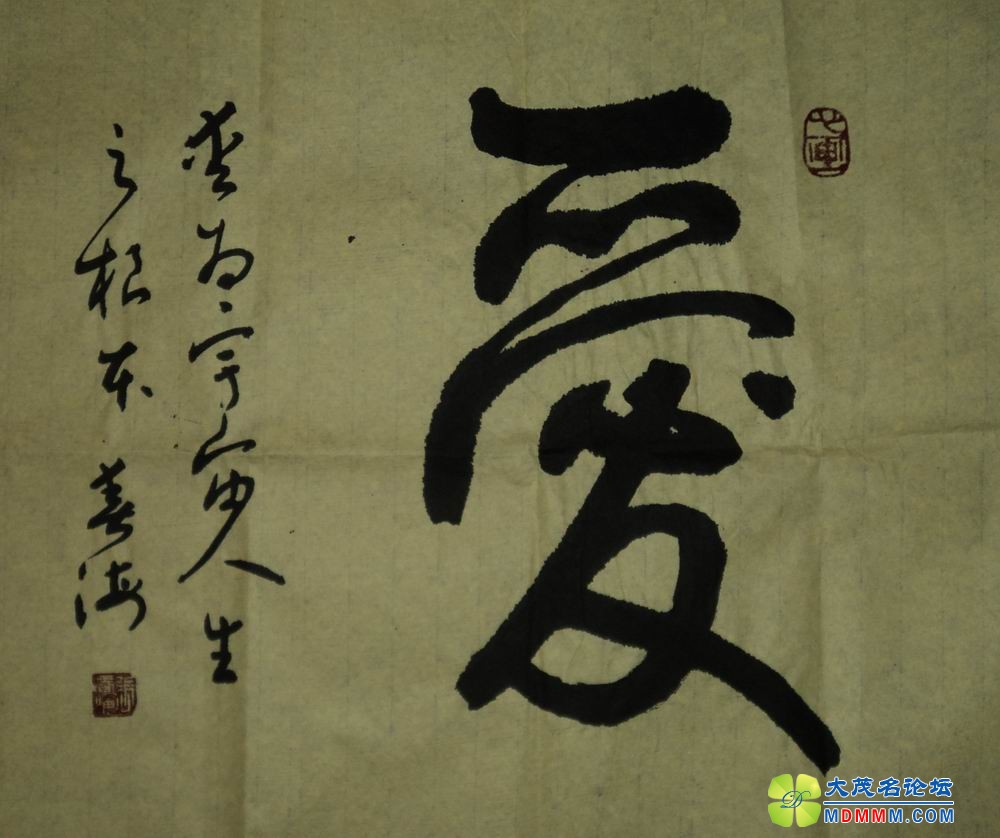 愛
爱为宇宙人生
之根本 春海
大茂名论坛
MDMMM.COM